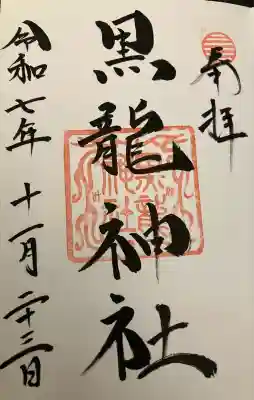 奉拝
黒龍神社
令和七年十一月二十三日